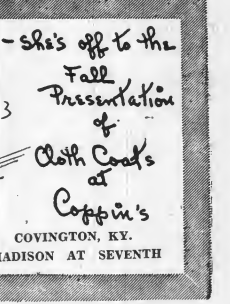 - she's off to the
Fall
Presentation
of
Cloth Coats
at
Coppin's
COVINGTON, KY.
MADISON AT SEVENTH